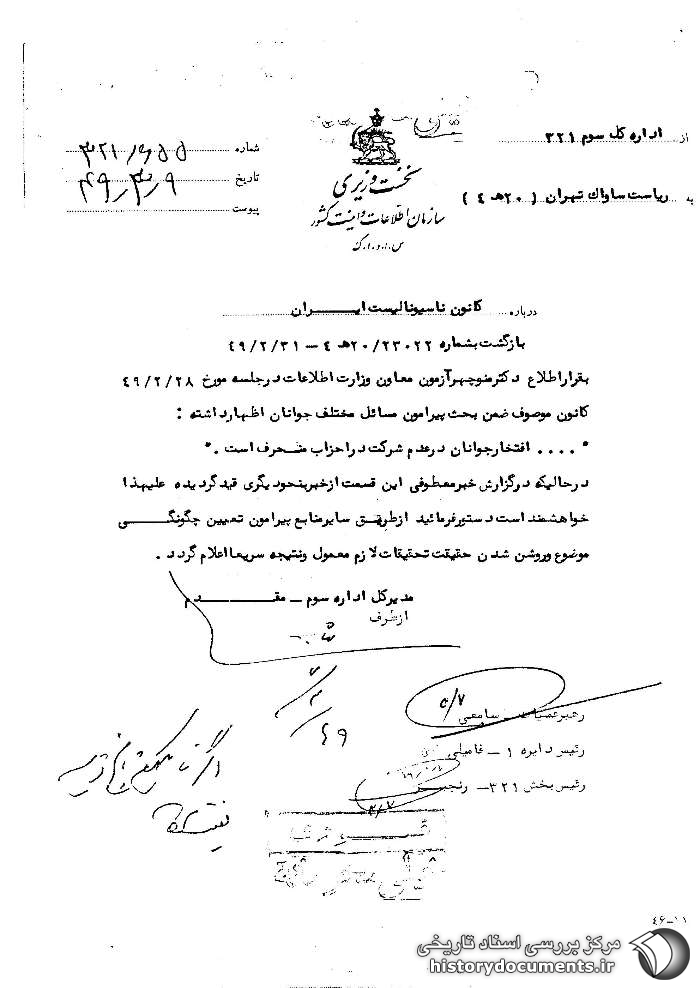 از اداره کل سوم ۳۲۱
به ریاست ساواک تهران ( ۲۰هـ ٤ )
نخست وزیری
سازمان اطلاعات و امنیت کشور
س.ا.و.ا.ک
شماره ۳۲۱/۶۵۵
تاریخ ۴۹/۳/۹
پیوست
درباره کانون ناسیونالیست ایران
بازگشت بشماره ۲۰/۲۳۰۲۲هـ ٤ – ٤۹/۲/۳۱
بقرار اطلاع دکتر منوچهر آزمون معاون وزارت اطلاعات در جلسه مورخ ٤۹/۲/۲۸
کانون موصوف ضمن بحث پیرامون مسائل مختلف جوانان اظهار داشته :
" .... افتخار جوانان در عدم شرکت در احزاب منحرف است . "
در حالیکه در گزارش خبر معطوفی این قسمت از خبر بنحو دیگری قید گردیده علیهذا
خواهشمند است دستور فرمائید از طریق سایر منابع پیرامون تعیین چگونگی
موضوع و روشن شدن حقیقت تحقیقات لازم معمول و نتیجه سریعا اعلام گردد .
مدیر کل اداره سوم – مقدم
از طرف
۷
۳
۴۹
رهبر عملیات – سامعی ۳/۷
رئیس دایره ۱ – فامیلی
رئیس بخش ۳۲۱ –
۳/۷
٤۶-۱۱
مرکز بررسی اسناد تاریخی
historydocuments.ir